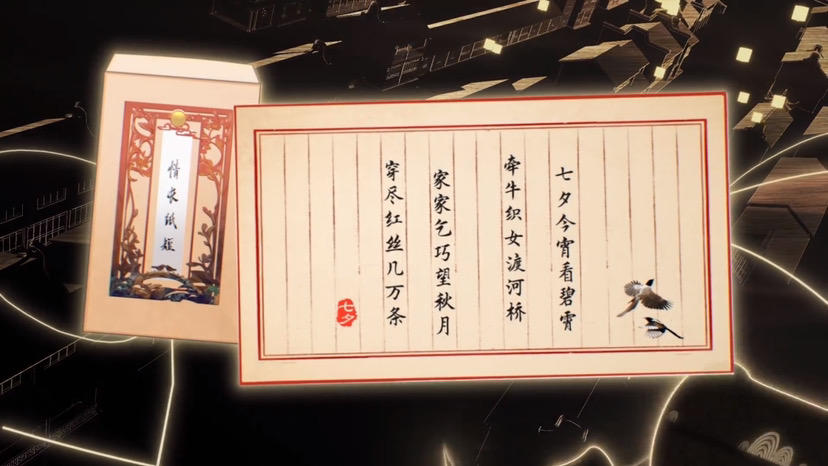 七夕今宵看碧霄
牵牛织女渡河桥
家家乞巧望秋月
穿尽红丝几万条
七夕
情长纸短